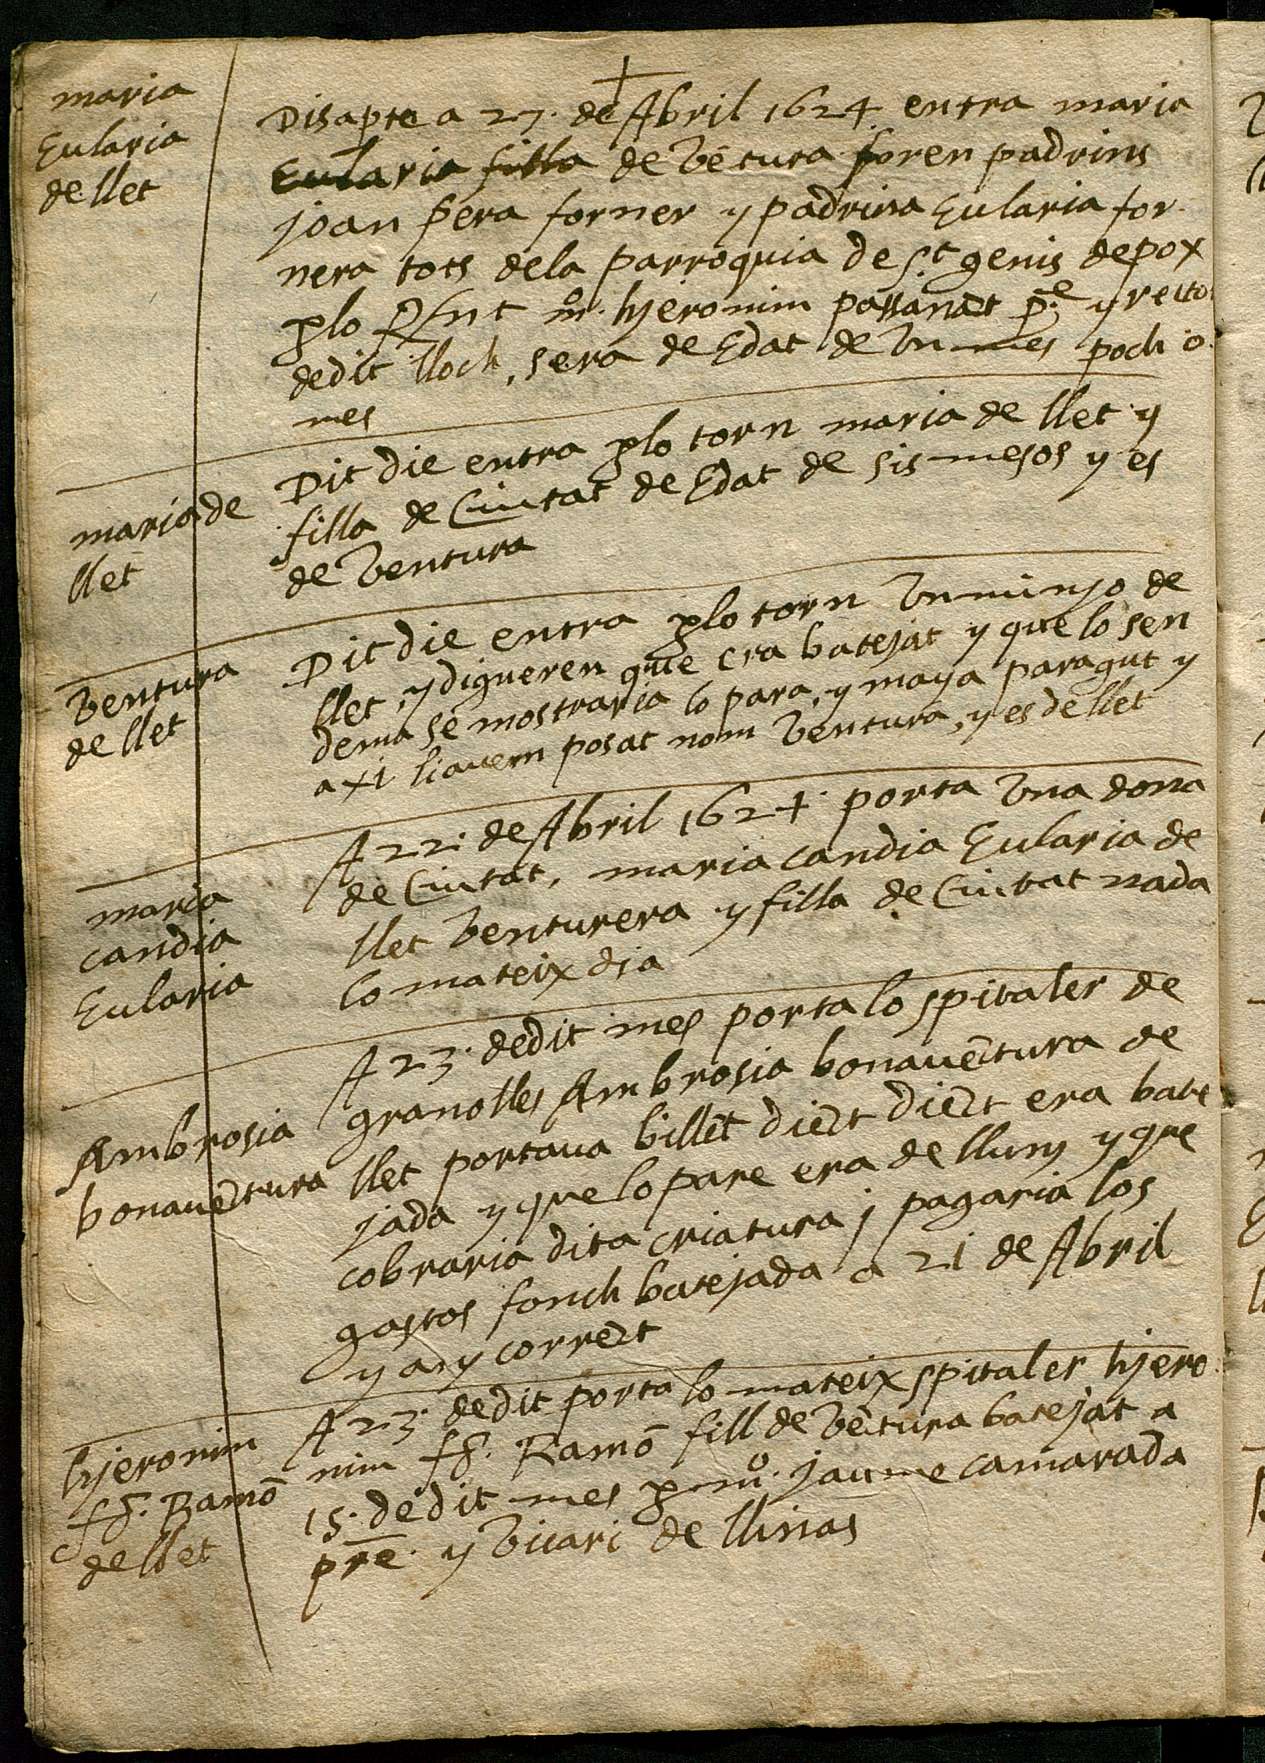 maria
Eularia
de llet
Disapte a 27. de Abril 1624 entra maria
Eularia filla de vētura foren padrins
joan pera forner y padrina Eularia for
nera tots dela parroquia de s.t genis depox
plo hjeronim passanat p.e y recto
dedit lloch, sera de Edat de vn mes poch o
mes
maria de
llet
Dit die entra plo torn maria de llet y
filla de Ciutat de Edat de sis mesos y es
de ventura
ventura
de llet
Dit die entra plo torn vn minjo de
llet, y digueren que era batejat y que lo sen
dema se mostraria lo para, y maya paragut y
axi liauem posat nom ventura, y es de llet
maria
candia
Eularia
A 22. de Abril 1624. porta vna dona
de Ciutat, maria candia Eularia de
llet venturera y filla de Ciutat nada
lo mateix dia
Ambrosia
bonauētura
A 23. dedit mes porta lo spitaler de
granolles Ambrosia bonauētura de
llet portaua billet diēt diēt era bate
jada y que lo pare era de lluny y que
cobraria dita criatura j pagaria los
gastos fonch batejada a 21 de Abril
y any corrēt
hjeronim
Ramō
de llet
A 23. dedit porta lo mateix spitaler hjero
nim Ramō fill de vētura batejat a
15. dedit mes p mº. jaume camarada
pre. y vicari de llinas